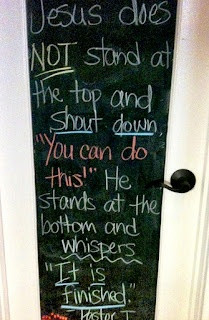 Jesus does
NOT stand at
the top and
shout down,
"You can do
this!" He
stands at the
bottom and
whispers
"It is
finished."
Pastor T